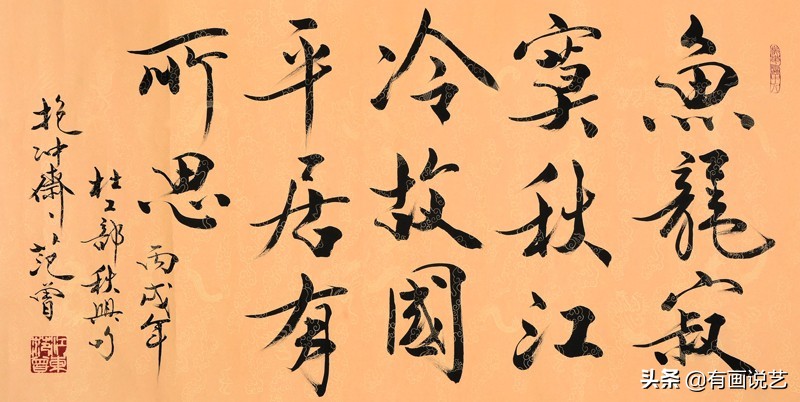 魚龍寂
寞秋江
冷故國
平居有
所思
丙戌年
杜工部秋興句
抱冲齋范曾
江東范曾
头条 @有画说艺